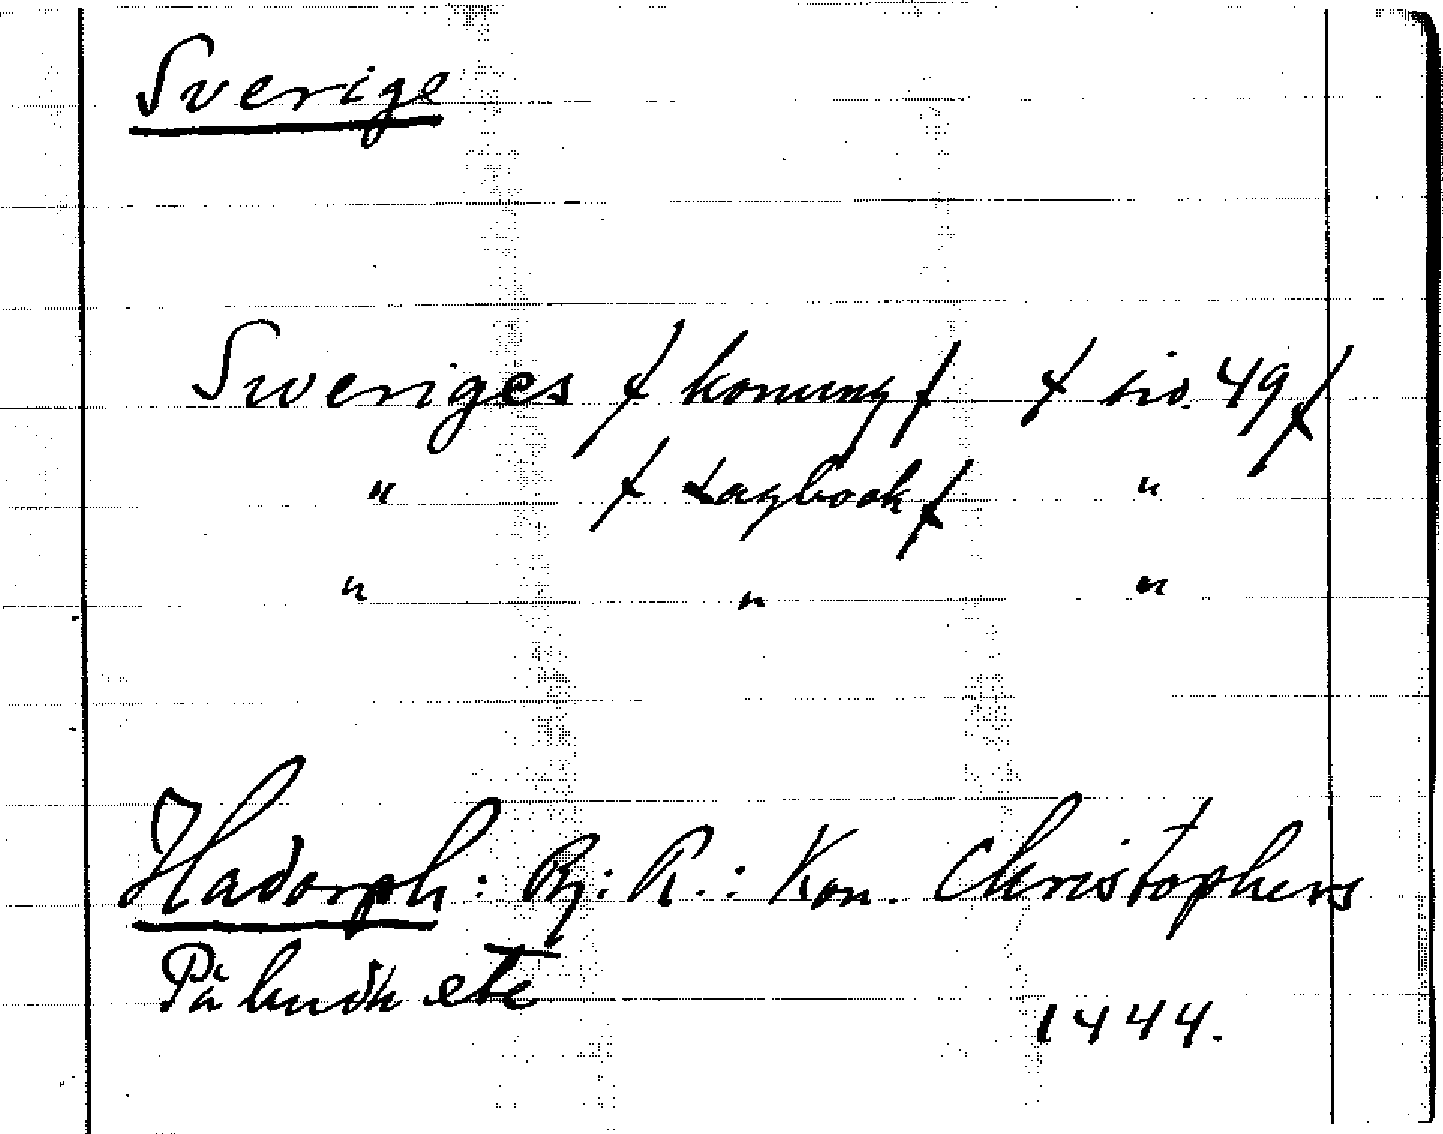 Sverige
Sweriges / konung / / sid. 49 /
" / Lagbook / "
" " "
Hadorph: Bj: R.: Kon. Christophers
Påbudh etc
1444.